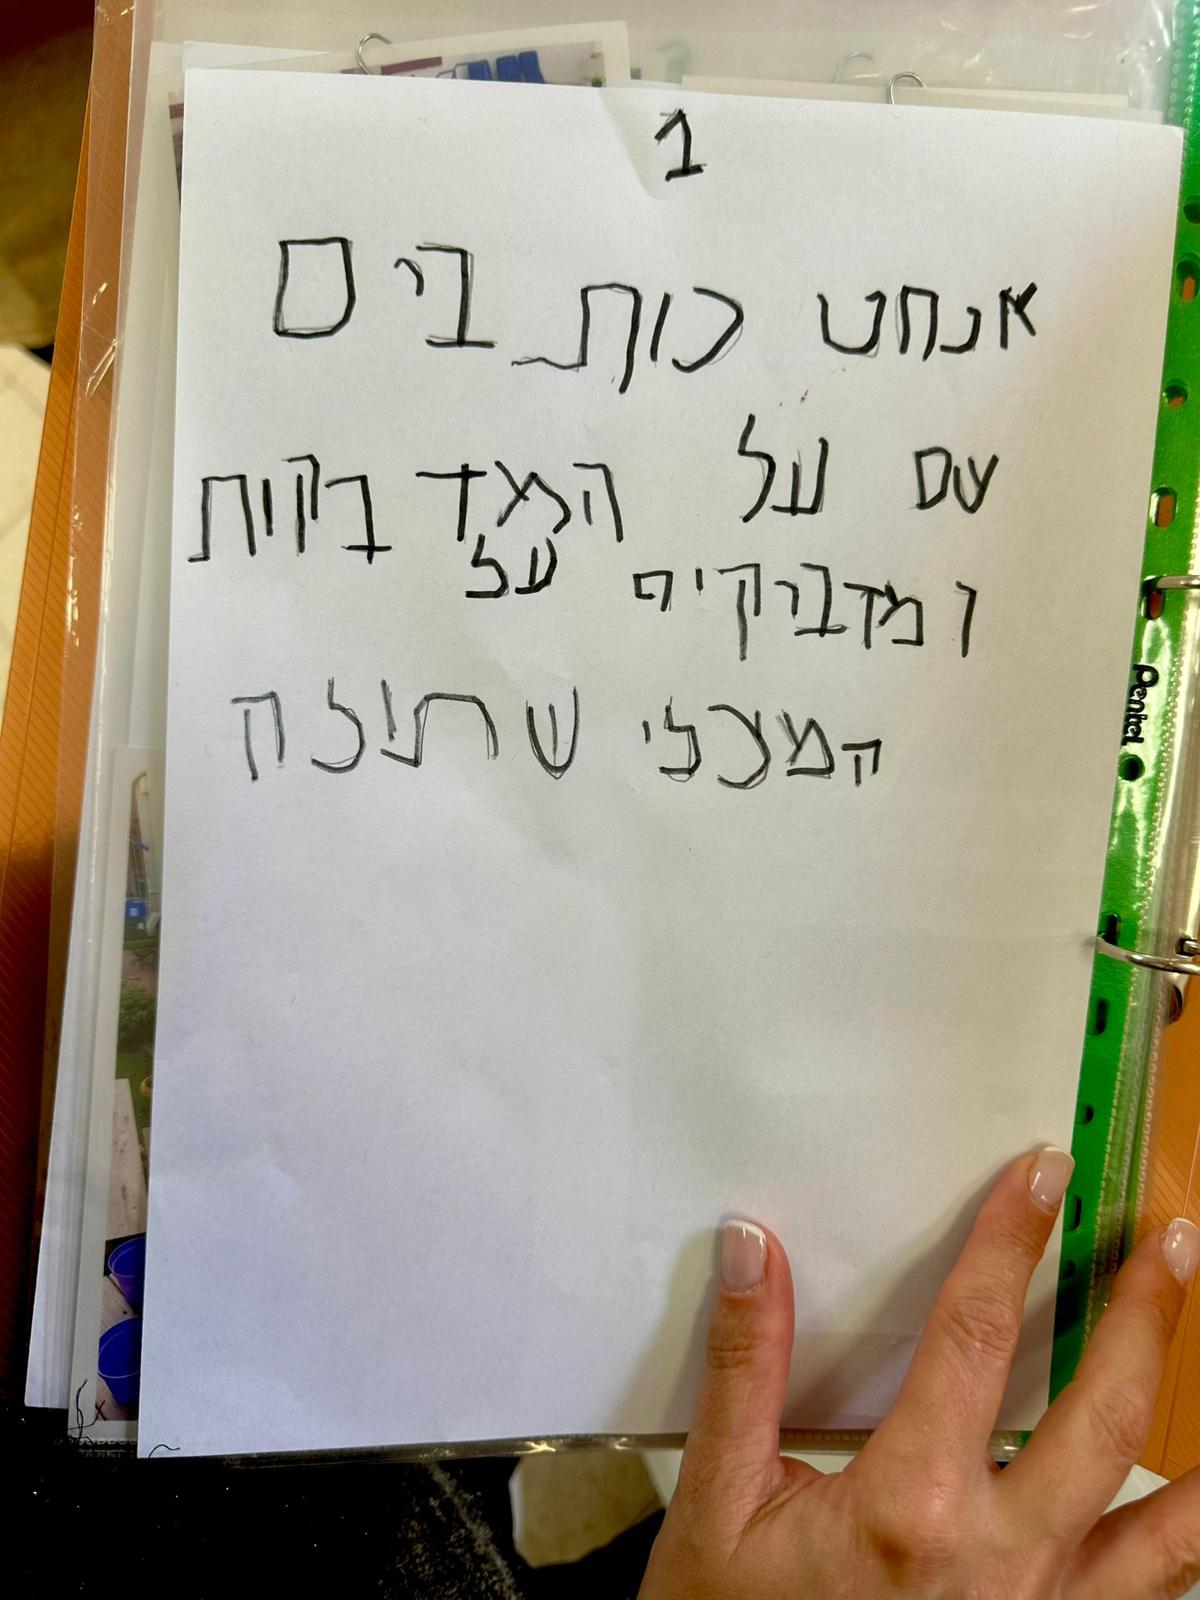 1
אנחנו כותבים
שם על המדבקות
ומדביקים על
המכלי שתילה
Pentel